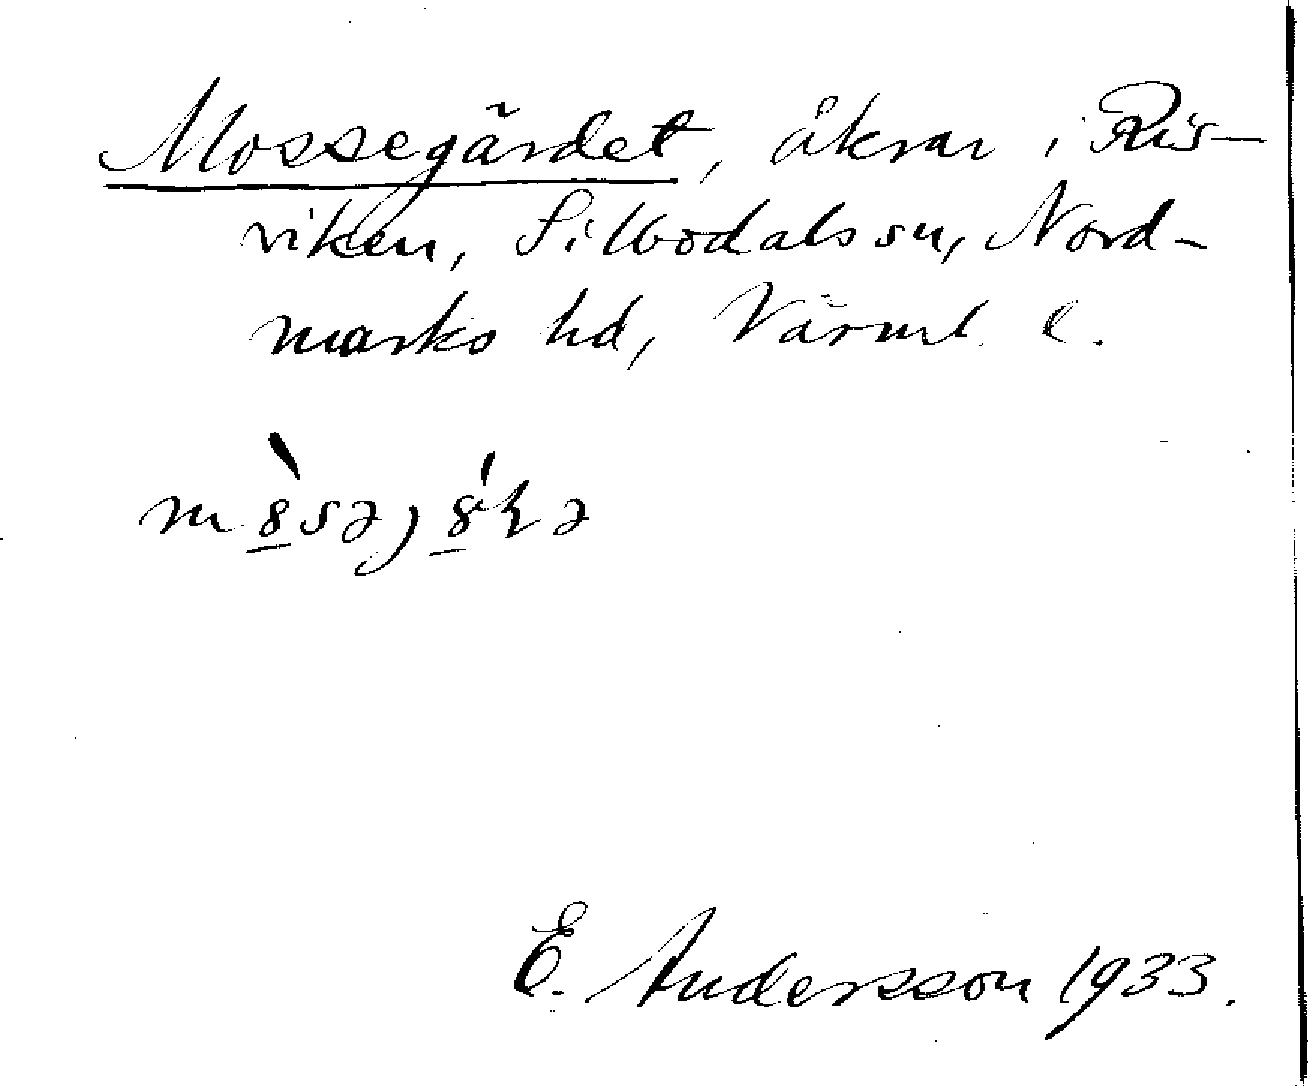 Mossegärdet, åkrar i Ris-
viken, Silbodals sn, Nord-
marks hd, Värml. l.
E. Andersson 1933.